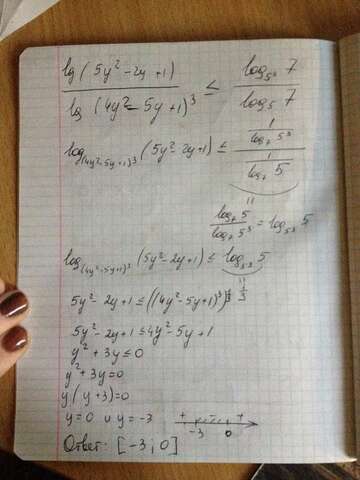 lg(5y²-2y+1) / lg(4y²-5y+1)³ ≤ log₅³ 7 / log₅ 7
log₍₄y²-5y+1₎³ (5y²-2y+1) ≤ (1 / log₇ 5³) / (1 / log₇ 5)
log₇ 5 / log₇ 5³ = log₅³ 5
log₍₄y²-5y+1₎³ (5y²-2y+1) ≤ log₅³ 5
1/3
5y²-2y+1 ≤ ((4y²-5y+1)³)^(1/3)
5y²-2y+1 ≤ 4y²-5y+1
y²+3y ≤ 0
y²+3y=0
y(y+3)=0
y=0 и y=-3
+ - +
-3 0
Ответ: [-3; 0]